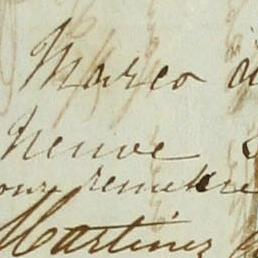 Marco d
Neuve S
our remettre
Martinez